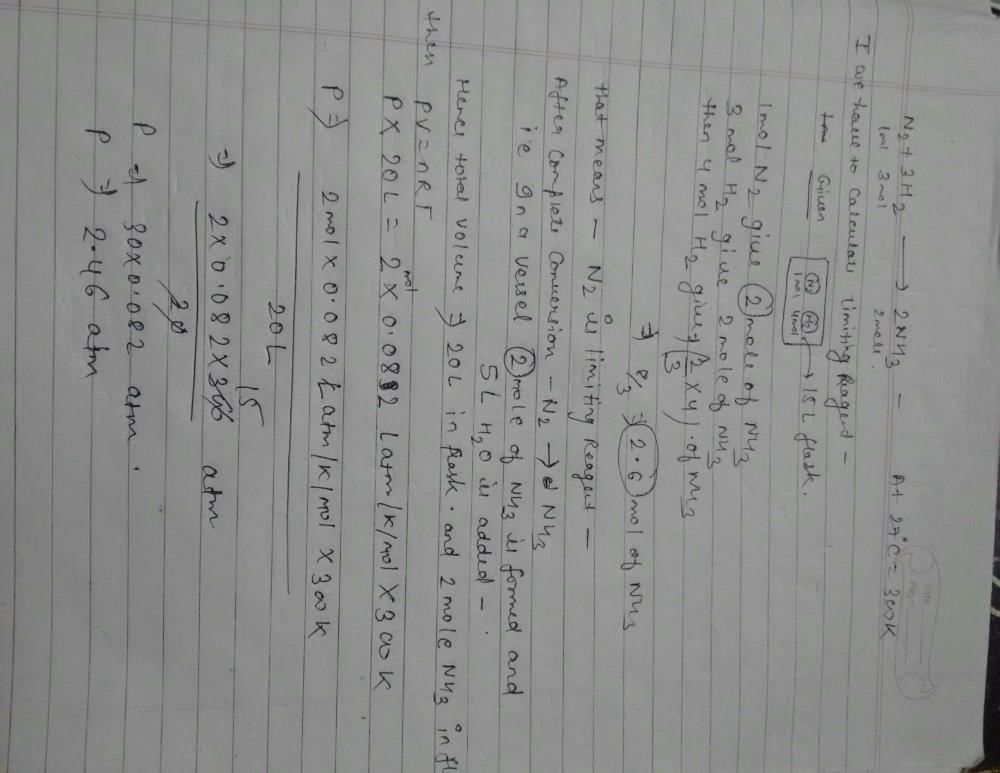 Date
Page
N2 + 3H2 ⟶ 2NH3 - At 27°C = 300K
1mol 3mol 2mole.
I we have to Calculate limiting Reagent -
Given
N2 H2 → 15L flask.
1mol 4mol
1mol N2 give 2 mole of NH3
3 mol H2 give 2 mole of NH3
then 4 mol H2 give (2/3 × 4) of NH3
⇒ 8/3 ⇒ 2.6 mol of NH3
that means - N2 is limiting Reagent -
After Complete Conversion - N2 → NH3
i.e In a vessel 2 mole of NH3 is formed and
5L H2O is added -
Hence total volume ⇒ 20L in flask. and 2 mole NH3 in fl
then PV = nRT
P × 20L = 2 mol × 0.082 L atm/K/mol × 300K
P ⇒ 2 mol × 0.082 L atm/K/mol × 300K
20L
15
⇒ 2 × 0.082 × 300 atm
20
P ⇒ 30 × 0.082 atm.
P ⇒ 2.46 atm